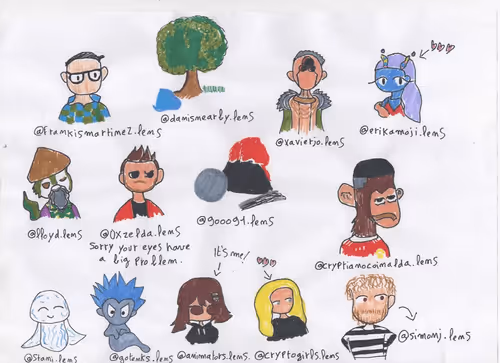 @frankismartinez.lens
@damismearly.lens
@xavierjo.lens
@erikamoji.lens
@lloyd.lens
@0xzelda.lens
Sorry your eyes have
a big problem.
@gooog1.lens
@cryptianocoimalda.lens
It's me!
@stani.lens
@gotenks.lens
@animalors.lens
@cryptogirls.lens
@simonj.lens